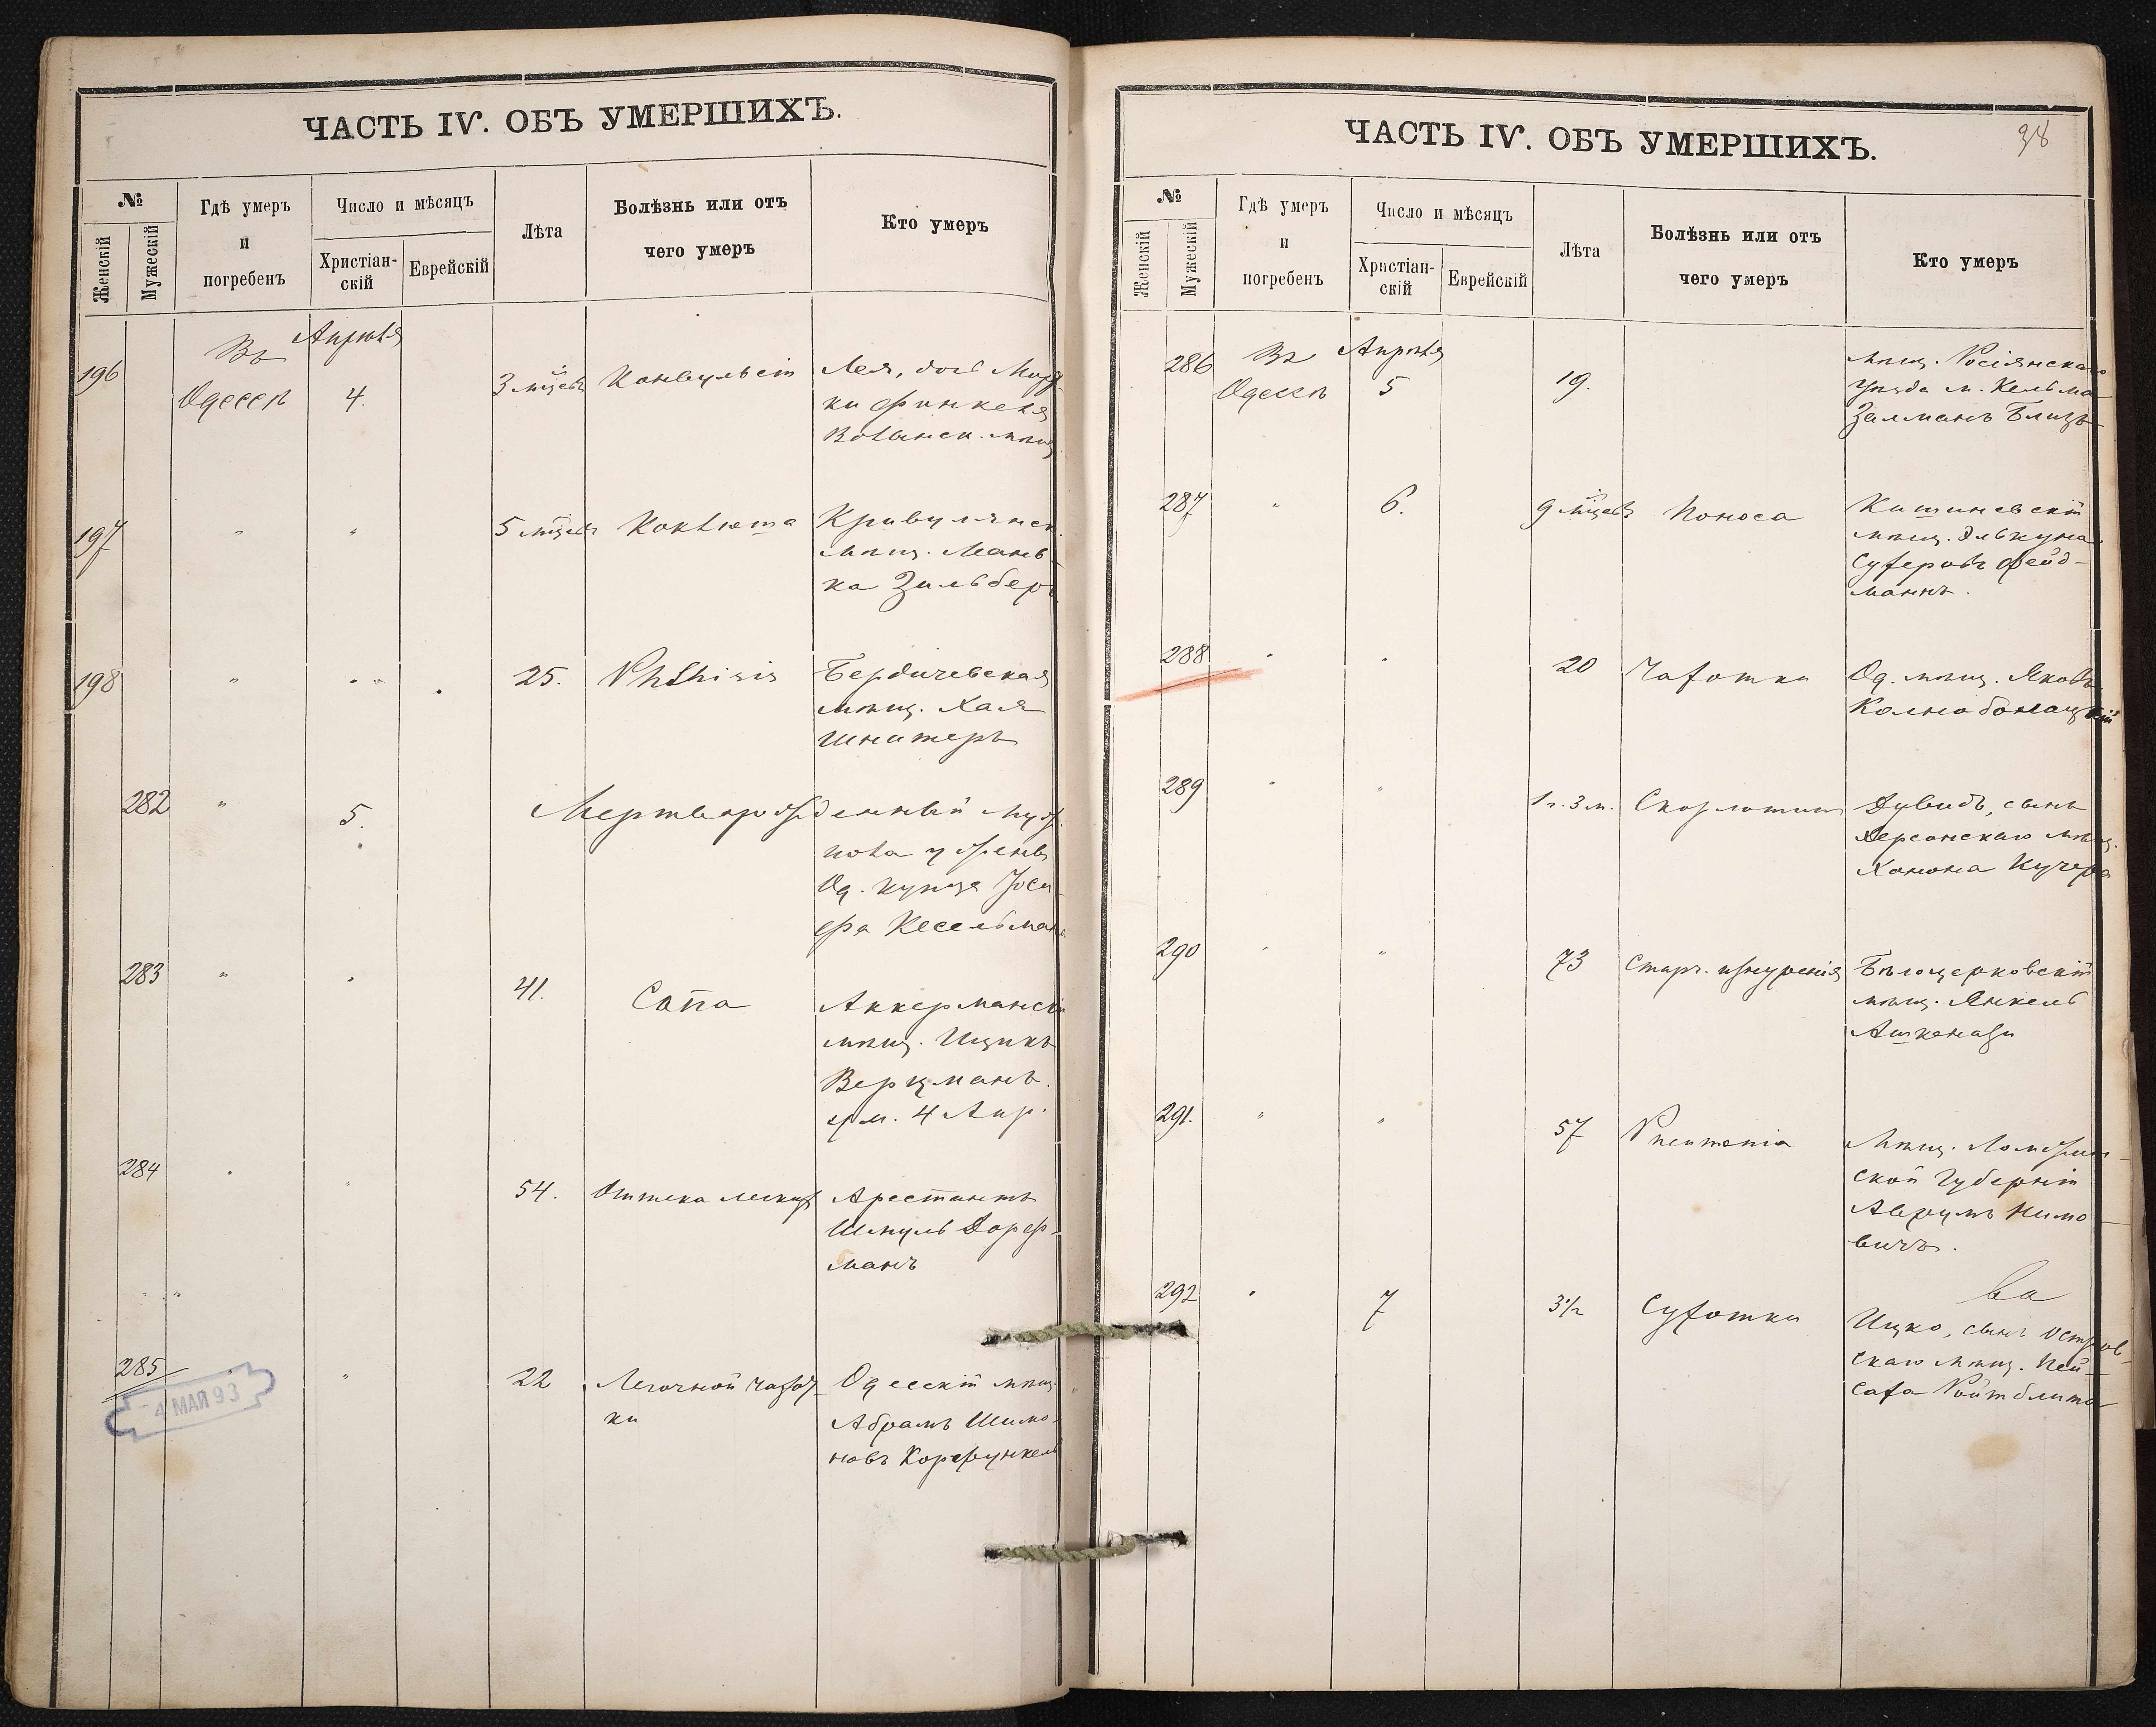 ЧАСТЬ IV. ОБЪ УМЕРШИХЪ.
№
Женскій
Мужескій
Гдѣ умеръ
и
погребенъ
Число и мѣсяцъ
Христіан-
скій
Еврейскій
Лѣта
Болѣзнь или отъ
чего умеръ
Кто умеръ
196
Въ
Одессѣ
Апрѣля
4.
3 мѣсць
Конвульсіи
Лея, дочь
ки Финкеля
Волынск. мѣщ.
197
"
"
5
Коклюша
мѣщ. Мань-
ка Зильберъ
198
"
" "
25.
Phthisis
Бердичевская
мѣщ. Хая
Шнитеръ
282
"
5.
Мертворожденный муж.
пола у жены
Од. купца Іоси-
фа Кесельмана
283
"
"
41.
Сапа
Аккерманскій
мѣщ. Ицикъ
Верцманъ.
ум. 4 Апр.
284
"
"
54.
Отека легкихъ
Арестантъ
Шмуль Дорф-
манъ
285
"
"
22
Легочной чахот-
ки
Одесскій мѣщ.
Абрамъ Шимо-
новъ Корфункель
4 МАЯ 93
ЧАСТЬ IV. ОБЪ УМЕРШИХЪ.
38
№
Женскій
Мужескій
Гдѣ умеръ
и
погребенъ
Число и мѣсяцъ
Христіан-
скій
Еврейскій
Лѣта
Болѣзнь или отъ
чего умеръ
Кто умеръ
286
Въ
Одессѣ
Апрѣля
5
19.
мѣщ. Росіянскаго
уѣзда м. Кельма
Залманъ Блиць
287
"
6.
9
Поноса
Кишиневскій
мѣщ. Элькуна
Сухеровъ Фейд-
манъ.
288
"
"
20
Чахотки
Од. мѣщ. Яковъ
289
"
"
1 г. 3 м.
Скарлатины
Дувидъ, сынъ
Херсонскаго мѣщ.
Ханона Кучера
290
"
"
73
Старч. изнуренія
Бѣлоцерковскій
мѣщ. Янкель
Ашкенази
291.
"
"
57
Pneumonia
Мѣщ. Ломжин-
ской Губерніи
Аврумъ Нимо-
вичъ.
292
"
7
3½
Сухотки
ва
Ицко, сынъ Остров-
скаго мѣщ. Пей-
саха Ройтблита